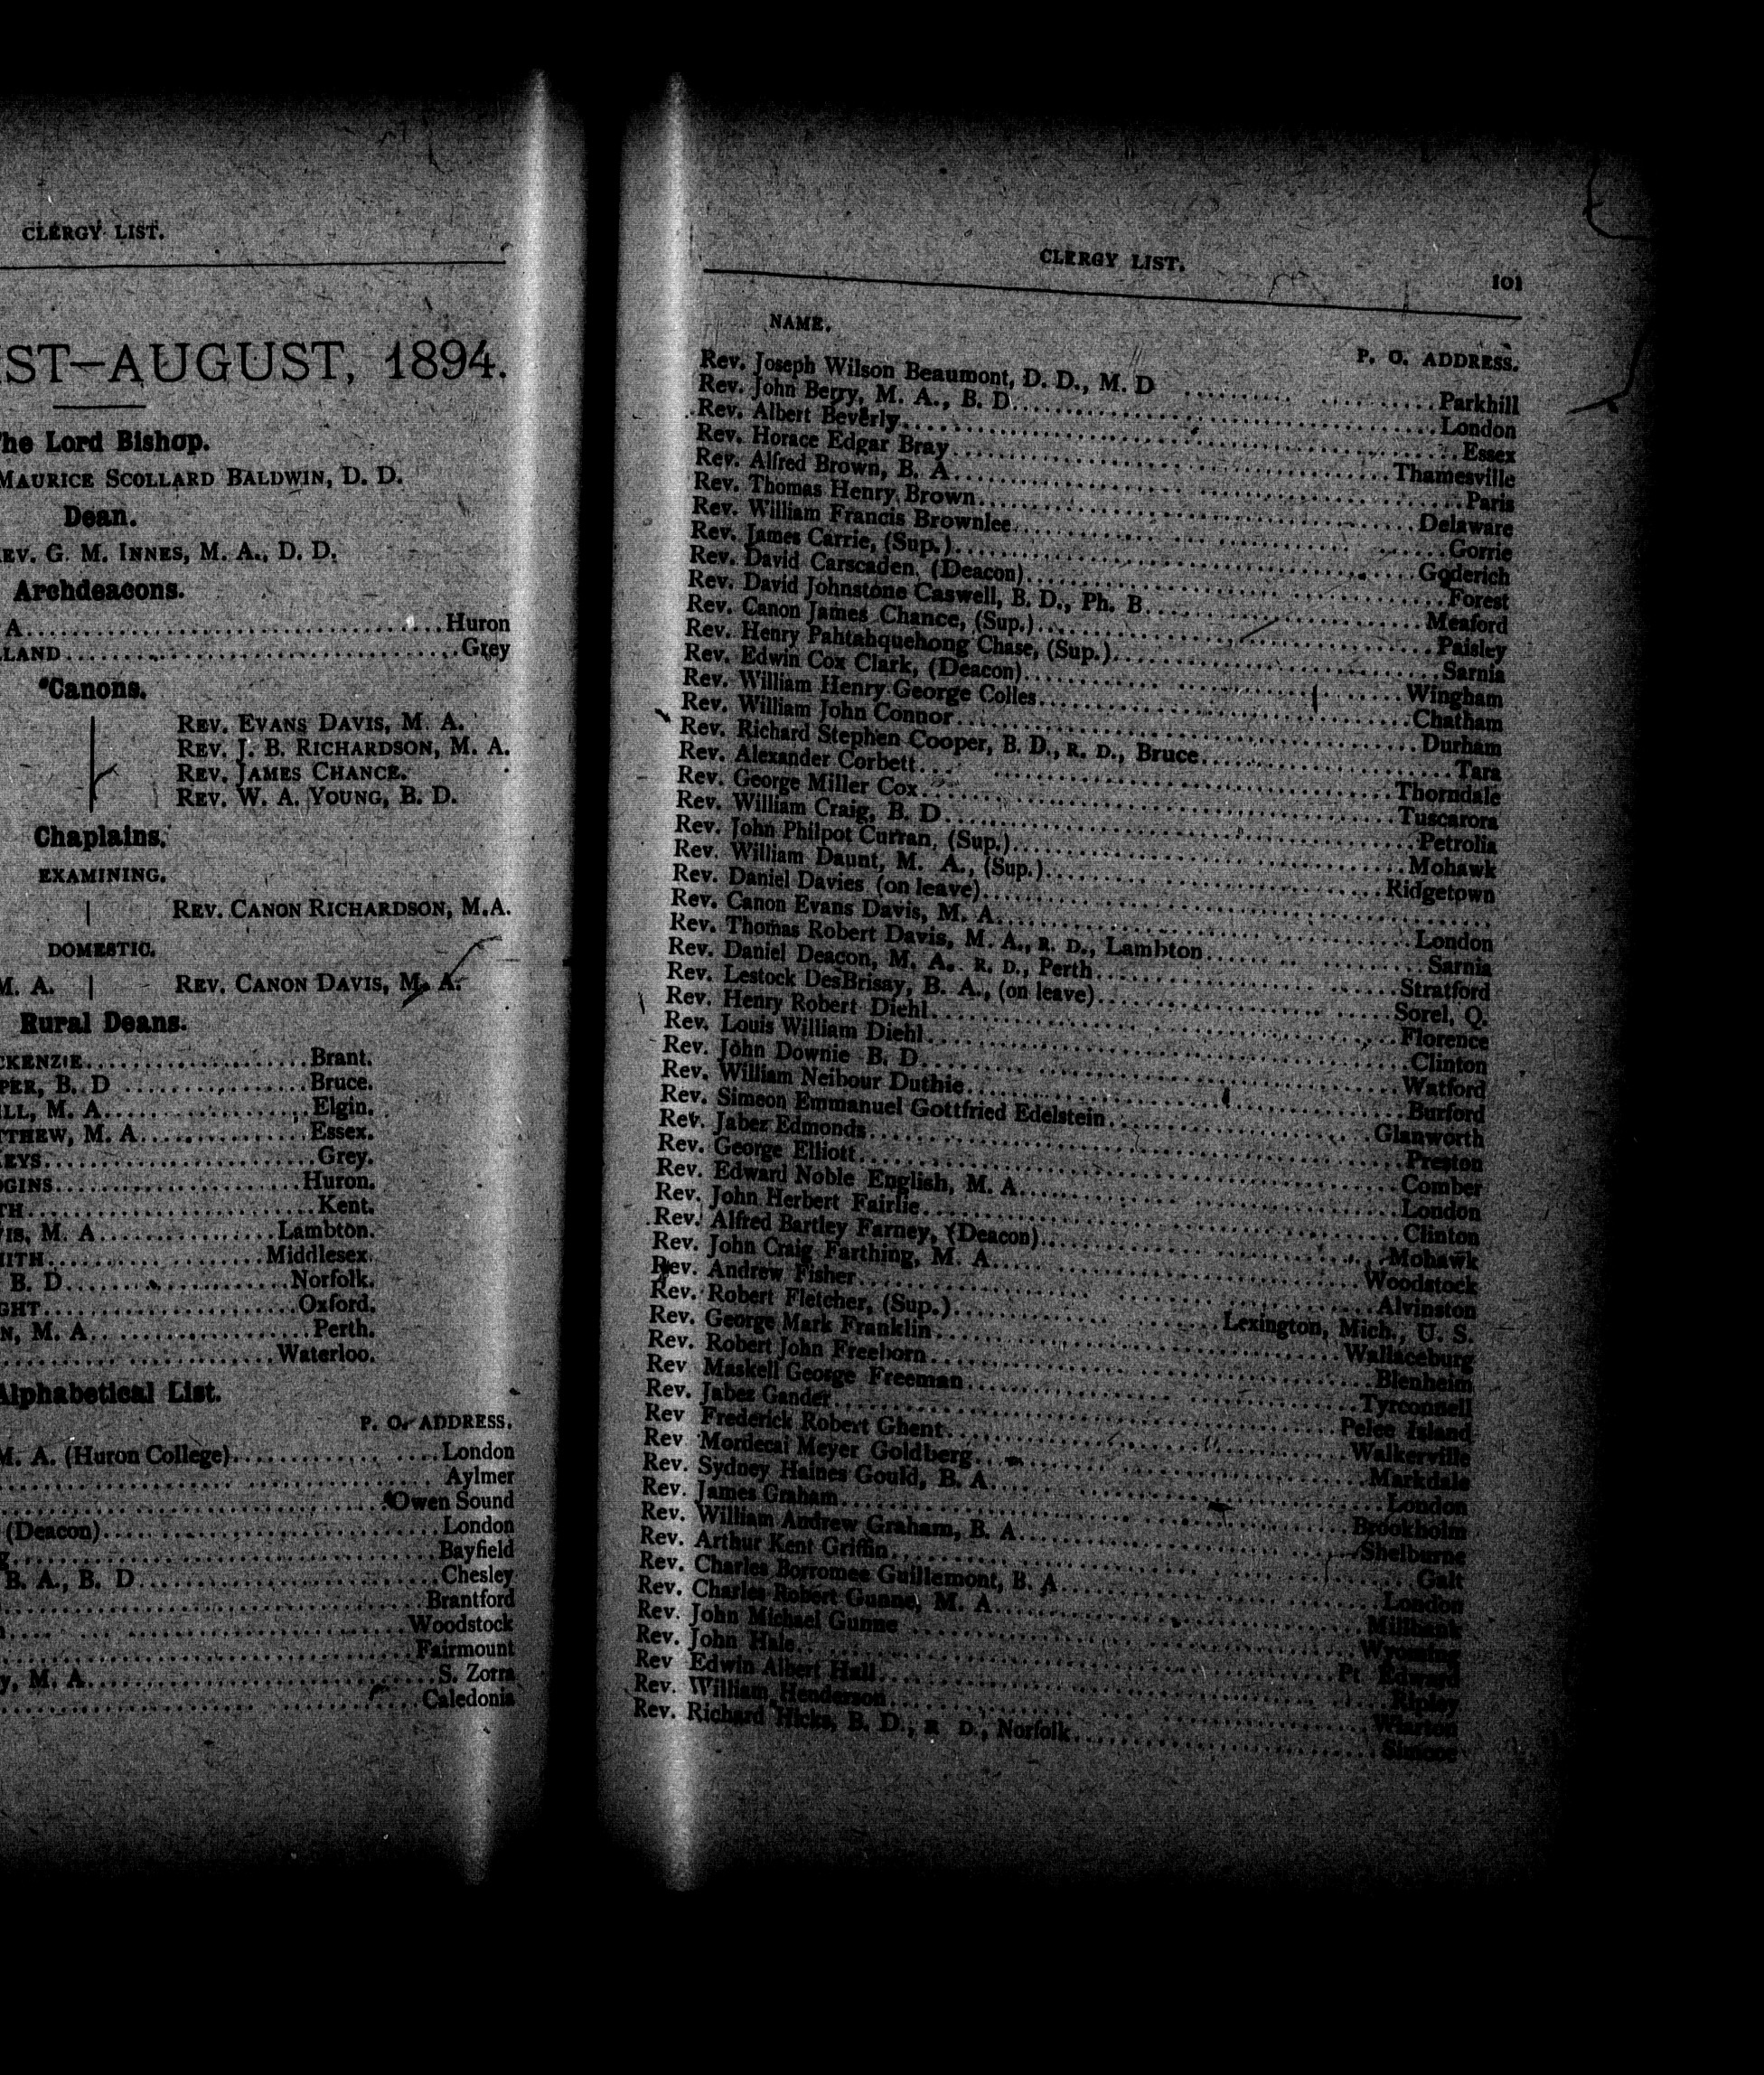 CLERGY LIST.
ST—AUGUST, 1894.
The Lord Bishop.
MAURICE SCOLLARD BALDWIN, D. D.
Dean.
REV. G. M. INNES, M. A., D. D.
Archdeacons.
A........Huron
LAND........Grey
*Canons.
REV. EVANS DAVIS, M. A.
REV. J. B. RICHARDSON, M. A.
REV. JAMES CHANCE.
REV. W. A. YOUNG, B. D.
Chaplains.
EXAMINING.
| REV. CANON RICHARDSON, M.A.
DOMESTIC.
M. A. | REV. CANON DAVIS, M. A.
Rural Deans.
CKENZIE........Brant.
PER, B. D........Bruce.
ILL, M. A........Elgin.
TTHEW, M. A........Essex.
EYS........Grey.
GINS........Huron.
TH........Kent.
VIS, M. A........Lambton.
MITH........Middlesex.
B. D........Norfolk.
GHT........Oxford.
N, M. A........Perth.
........Waterloo.
Alphabetical List.
P. O. ADDRESS.
M. A. (Huron College)........London
........Aylmer
........Owen Sound
(Deacon)........London
........Bayfield
B. A., B. D........Chesley
........Brantford
........Woodstock
........Fairmount
y, M. A........S. Zorra
........Caledonia
CLERGY LIST. 101
NAME. P. O. ADDRESS.
Rev. Joseph Wilson Beaumont, D. D., M. D........Parkhill
Rev. John Berry, M. A., B. D........London
Rev. Albert Beverly........Essex
Rev. Horace Edgar Bray........Thamesville
Rev. Alfred Brown, B. A........Paris
Rev. Thomas Henry Brown........Delaware
Rev. William Francis Brownlee........Gorrie
Rev. James Carrie, (Sup.)........Goderich
Rev. David Carscaden, (Deacon)........Forest
Rev. David Johnstone Caswell, B. D., Ph. B........Meaford
Rev. Canon James Chance, (Sup.)........Paisley
Rev. Henry Pahtahquehong Chase, (Sup.)........Sarnia
Rev. Edwin Cox Clark, (Deacon)........Wingham
Rev. William Henry George Colles........Chatham
Rev. William John Connor........Durham
Rev. Richard Stephen Cooper, B. D., R. D., Bruce........Tara
Rev. Alexander Corbett........Thorndale
Rev. George Miller Cox........Tuscarora
Rev. William Craig, B. D........Petrolia
Rev. John Philpot Curran, (Sup.)........Mohawk
Rev. William Daunt, M. A., (Sup.)........Ridgetown
Rev. Daniel Davies (on leave)........
Rev. Canon Evans Davis, M. A........London
Rev. Thomas Robert Davis, M. A., R. D., Lambton........Sarnia
Rev. Daniel Deacon, M. A.. R. D., Perth........Stratford
Rev. Lestock DesBrisay, B. A., (on leave)........Sorel, Q.
Rev. Henry Robert Diehl........Florence
Rev. Louis William Diehl........Clinton
Rev. John Downie B. D........Watford
Rev. William Neibour Duthie........Burford
Rev. Simeon Emmanuel Gottfried Edelstein........Glanworth
Rev. Jabez Edmonds........Preston
Rev. George Elliott........Comber
Rev. Edward Noble English, M. A........London
Rev. John Herbert Fairlie........Clinton
Rev. Alfred Bartley Farney, (Deacon)........Mohawk
Rev. John Craig Farthing, M. A........Woodstock
Rev. Andrew Fisher........Alvinston
Rev. Robert Fletcher, (Sup.)........Lexington, Mich., U. S.
Rev. George Mark Franklin........Wallaceburg
Rev. Robert John Freeborn........Blenheim
Rev Maskell George Freeman........Tyrconnell
Rev. Jabez Gander........Pelee Island
Rev Frederick Robert Ghent........Walkerville
Rev Mordecai Meyer Goldberg........Markdale
Rev. Sydney Haines Gould, B. A........London
Rev. James Graham........Brookholm
Rev. William Andrew Graham, B. A........Shelburne
Rev. Arthur Kent Griffin........Galt
Rev. Charles Borromee Guillemont, B. A........London
Rev. Charles Robert Gunne, M. A........Millbank
Rev. John Michael Gunne........Wyoming
Rev. John Hale........Pt Edward
Rev Edwin Albert Hall........Ripley
Rev. William Henderson........Wiarton
Rev. Richard Hicks, B. D., R D., Norfolk........Simcoe